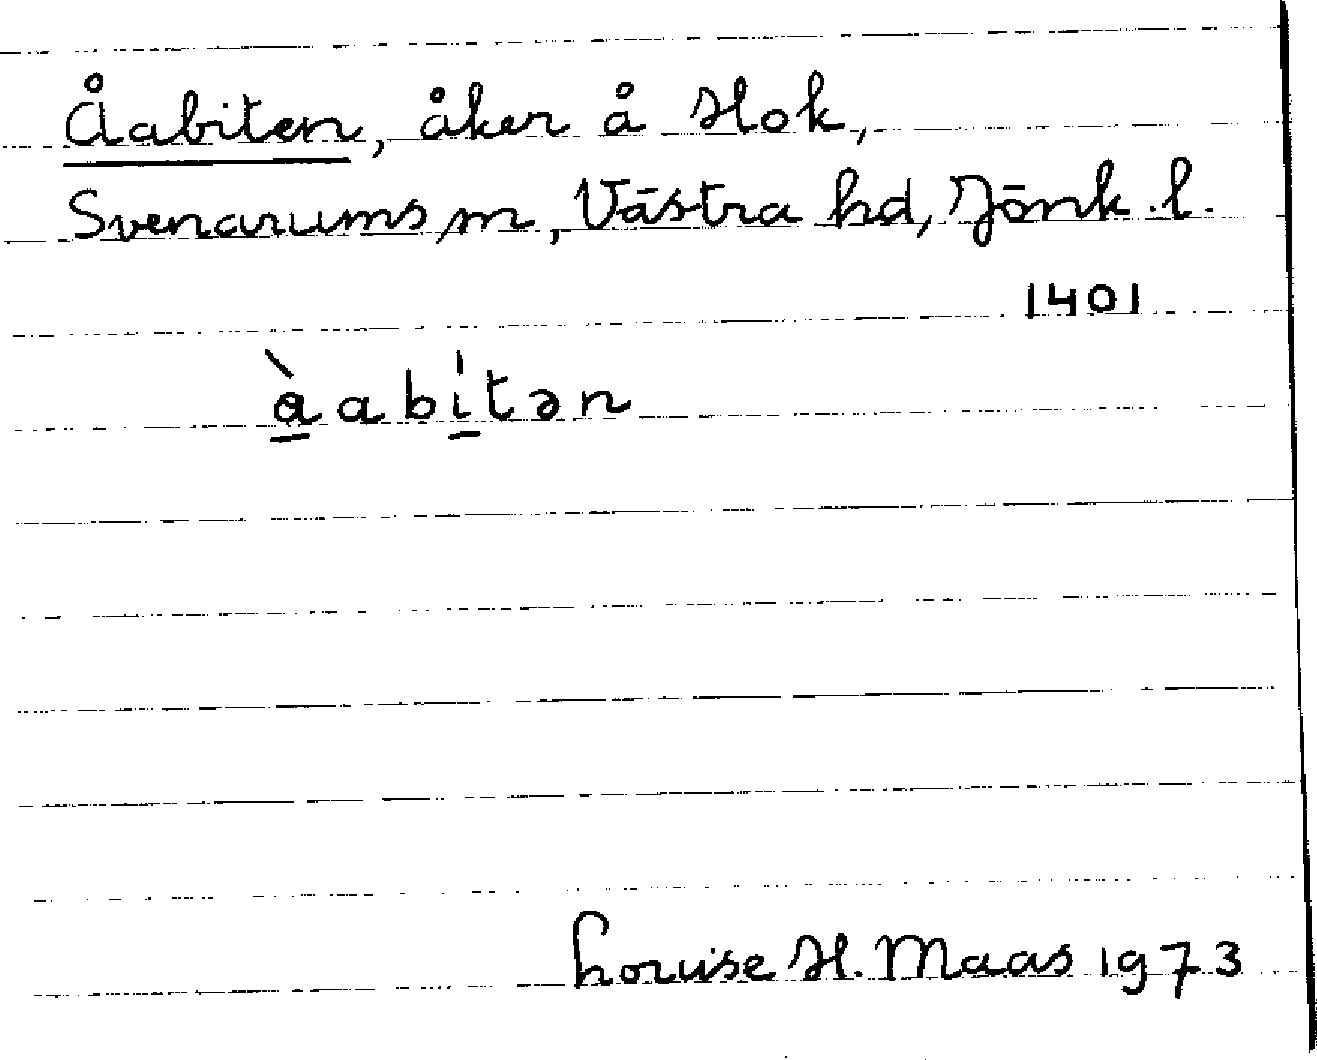 Åabiten, åker å Hok,
Svenarums sn, Västra hd, Jönk. l.
1401
àabi̍tən
Louise H. Maas 1973